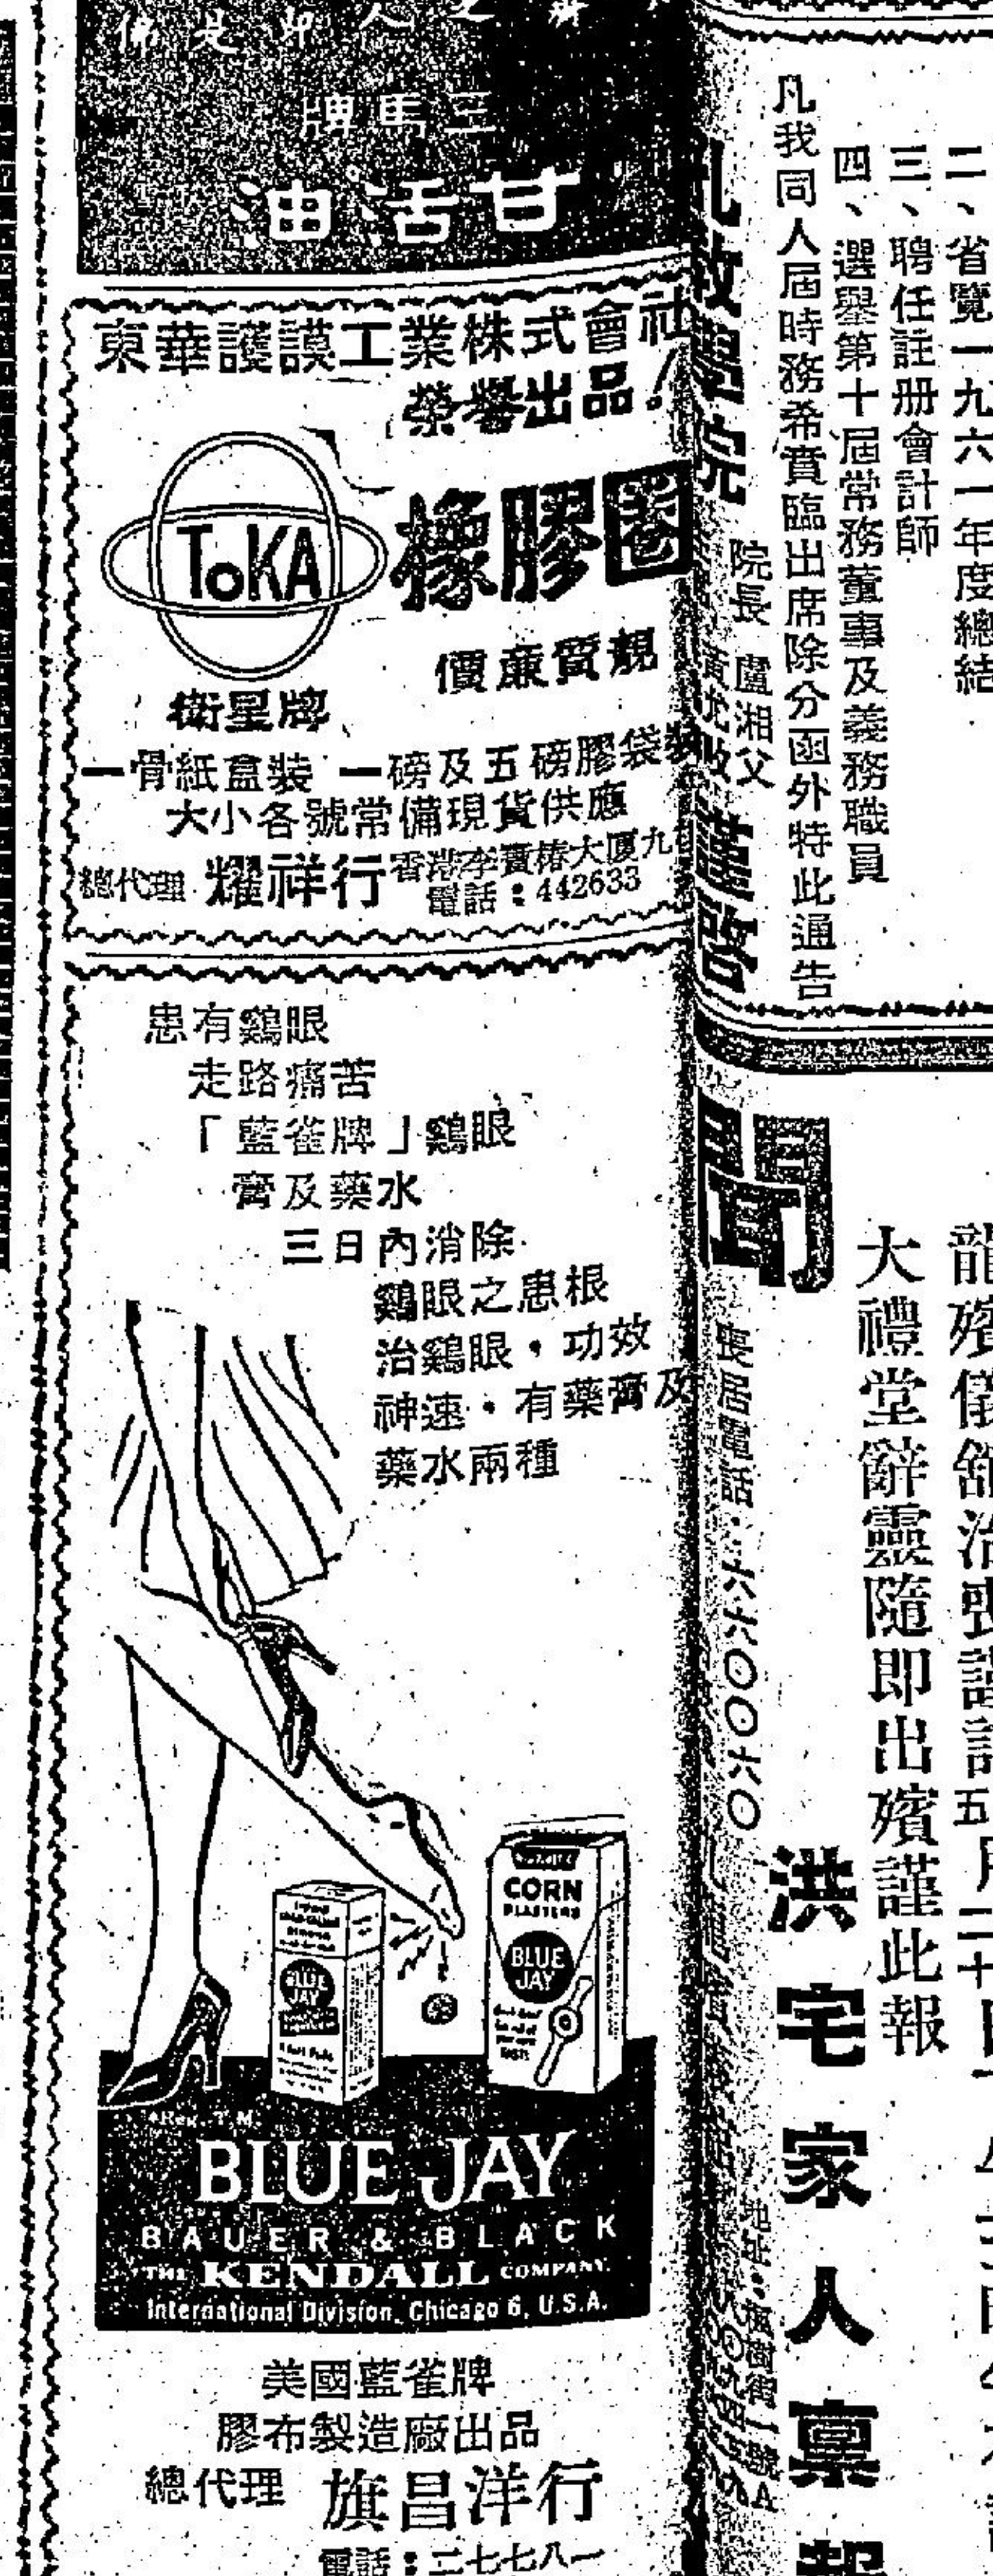 三馬牌
甘活油
東華護謨工業株式會社
榮譽出品！
TOKA
橡膠圈
價廉質靚
衛星牌
一骨紙盒裝 一磅及五磅膠袋裝
大小各號常備現貨供應
總代理 耀祥行
香港李寶椿大厦九
電話：442633
患有鷄眼
走路痛苦
「藍雀牌」鷄眼
膏及藥水
三日內消除
鷄眼之患根
治鷄眼，功效
神速，有藥膏及
藥水兩種
CORN
PLASTERS
BLUE
JAY
BLUE
JAY
*Reg. T.M.
BLUE JAY
BAUER & BLACK
THE KENDALL COMPANY
International Division, Chicago 6, U.S.A.
美國藍雀牌
膠布製造廠出品
總代理 旗昌洋行
電話：二七七八一
二、省覽一九六一年度總結
三、聘任註册會計師
四、選舉第十屆常務董事及義務職員
凡我同人屆時務希賁臨出席除分函外特此通告
孔教學院 院長 盧湘父
謹啓
聞
龍殯儀舘治喪謹訂五月二十日
大禮堂辭靈隨即出殯謹此報
洪宅家人稟報
喪居電話：六六〇〇六〇
地址：楓樹街一號A